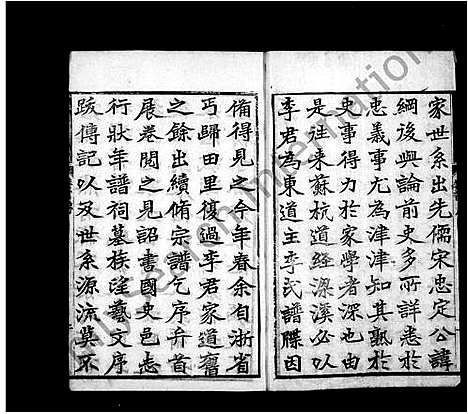 家世系出先儒宋忠定公諱
綱後與論前史多所詳悉於
忠義事尤為津津知其熟於
史事得力於家學者深也由
是往来蘇杭道經溪必以
李君為東道主李氏譜牒因
備得見之今年春余自浙省
丐歸田里復過李君家道舊
之餘出續脩宗譜乞序弁首
展卷閱之見詔書國史邑志
行狀年譜祠墓族望藝文序
跋傳記以及世系源流莫不
FamilySearch International